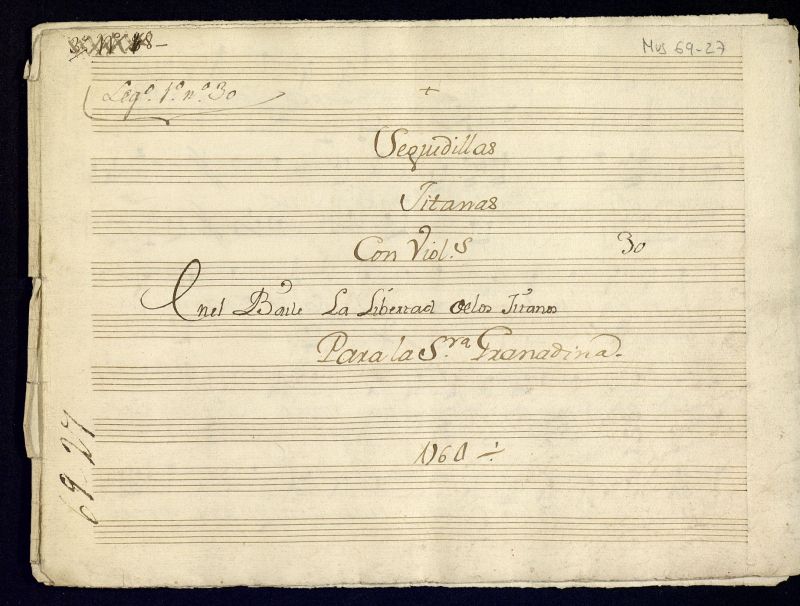 Mus 69-27
Leg.º 1.º n.º 30
+
Seguidillas
Jitanas
Con Viol.s
30
Enel Baile La Libertad delos Jitanos
Para la S.ra Granadina.
1761
69-27